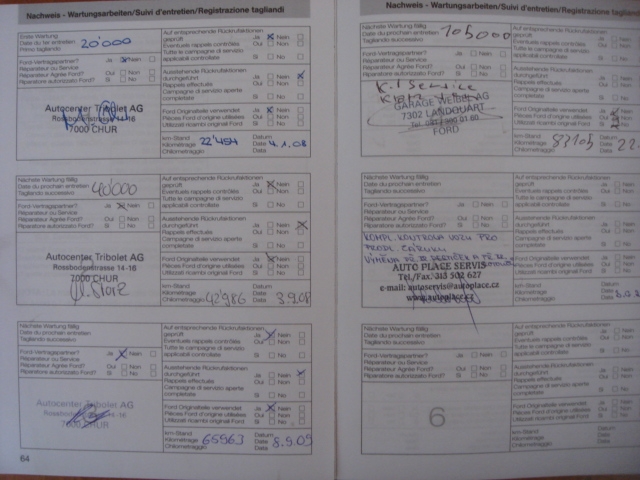 Nachweis - Wartungsarbeiten/Suivi d'entretien/Registrazione tagliandi
Erste Wartung
Date du 1er entretien
Primo tagliando
20'000
Auf entsprechende Rückrufaktionen
geprüft Ja Nein
Eventuels rappels contrôlés Oui Non
Tutte le campagne di servizio
applicabili controllate Si No
Ford-Vertragspartner? Ja Nein
Réparateur ou Service
Réparateur Agréé Ford? Oui Non
Riparatore autorizzato Ford? Si No
Ausstehende Rückrufaktionen
durchgeführt Ja Nein
Rappels effectués Oui Non
Campagne di servizio aperte
completate Si No
Autocenter Tribolet AG
Rossbodenstrasse 14-16
7000 CHUR
Ford Originalteile verwendet Ja Nein
Pièces Ford d'origine utilisées Oui Non
Utilizzati ricambi originali Ford Si No
km-Stand
Kilométrage
Chilometraggio
22'454
Datum
Date
Data
4.1.08
Nächste Wartung fällig
Date du prochain entretien
Tagliando successivo
40'000
Auf entsprechende Rückrufaktionen
geprüft Ja Nein
Eventuels rappels contrôlés Oui Non
Tutte le campagne di servizio
applicabili controllate Si No
Ford-Vertragspartner? Ja Nein
Réparateur ou Service
Réparateur Agréé Ford? Oui Non
Riparatore autorizzato Ford? Si No
Ausstehende Rückrufaktionen
durchgeführt Ja Nein
Rappels effectués Oui Non
Campagne di servizio aperte
completate Si No
Autocenter Tribolet AG
Rossbodenstrasse 14-16
7000 CHUR
Ford Originalteile verwendet Ja Nein
Pièces Ford d'origine utilisées Oui Non
Utilizzati ricambi originali Ford Si No
km-Stand
Kilométrage
Chilometraggio
42'986
Datum
Date
Data
3.9.08
Nächste Wartung fällig
Date du prochain entretien
Tagliando successivo
Auf entsprechende Rückrufaktionen
geprüft Ja Nein
Eventuels rappels contrôlés Oui Non
Tutte le campagne di servizio
applicabili controllate Si No
Ford-Vertragspartner? Ja Nein
Réparateur ou Service
Réparateur Agréé Ford? Oui Non
Riparatore autorizzato Ford? Si No
Ausstehende Rückrufaktionen
durchgeführt Ja Nein
Rappels effectués Oui Non
Campagne di servizio aperte
completate Si No
Autocenter Tribolet AG
7000 CHUR
Ford Originalteile verwendet Ja Nein
Pièces Ford d'origine utilisées Oui Non
Utilizzati ricambi originali Ford Si No
km-Stand
Kilométrage
Chilometraggio
65963
Datum
Date
Data
8.9.09
64
Nachweis - Wartungsarbeiten/Suivi d'entretien/Registrazione tagliandi
Nächste Wartung fällig
Date du prochain entretien
Tagliando successivo
105000
Auf entsprechende Rückrufaktionen
geprüft Ja Nein
Eventuels rappels contrôlés Oui
Tutte le campagne di servizio
applicabili controllate Si
Ford-Vertragspartner? Ja Nein
Réparateur ou Service
Réparateur Agréé Ford? Oui Non
Riparatore autorizzato Ford? Si No
Ausstehende Rückrufaktionen
durchgeführt Ja
Rappels effectués Oui
Campagne di servizio aperte
completate Si
Service
GARAGE WEIBEL AG
7302 LANDQUART
FORD
Ford Originalteile verwendet Ja
Pièces Ford d'origine utilisées Oui
Utilizzati ricambi originali Ford Si
km-Stand
Kilométrage
Chilometraggio
83105
Datum
Date
Data
22.
Nächste Wartung fällig
Date du prochain entretien
Tagliando successivo
Auf entsprechende Rückrufaktionen
geprüft Ja
Eventuels rappels contrôlés Oui
Tutte le campagne di servizio
applicabili controllate Si
Ford-Vertragspartner? Ja Nein
Réparateur ou Service
Réparateur Agréé Ford? Oui Non
Riparatore autorizzato Ford? Si No
Ausstehende Rückrufaktionen
durchgeführt Ja
Rappels effectués Oui
Campagne di servizio aperte
completate Si
KOMPL. KONTROLA VOZU PRO
PRODL. ZÁRUKU
VÝMĚNA
AUTO PLACE SERVIS
Tel./Fax. 313 502 627
e-mail: autoservis@autoplace.cz
www.autoplace.cz
Ford Originalteile verwendet Ja
Pièces Ford d'origine utilisées Oui
Utilizzati ricambi originali Ford Si
km-Stand
Kilométrage
Chilometraggio
Datum
Date
Data
Nächste Wartung fällig
Date du prochain entretien
Tagliando successivo
Auf entsprechende Rückrufaktionen
geprüft Ja
Eventuels rappels contrôlés Oui
Tutte le campagne di servizio
applicabili controllate Si
Ford-Vertragspartner? Ja Nein
Réparateur ou Service
Réparateur Agréé Ford? Oui Non
Riparatore autorizzato Ford? Si No
Ausstehende Rückrufaktionen
durchgeführt Ja
Rappels effectués Oui
Campagne di servizio aperte
completate Si
6
Ford Originalteile verwendet Ja
Pièces Ford d'origine utilisées Oui
Utilizzati ricambi originali Ford Si
km-Stand
Kilométrage
Chilometraggio
Datum
Date
Data